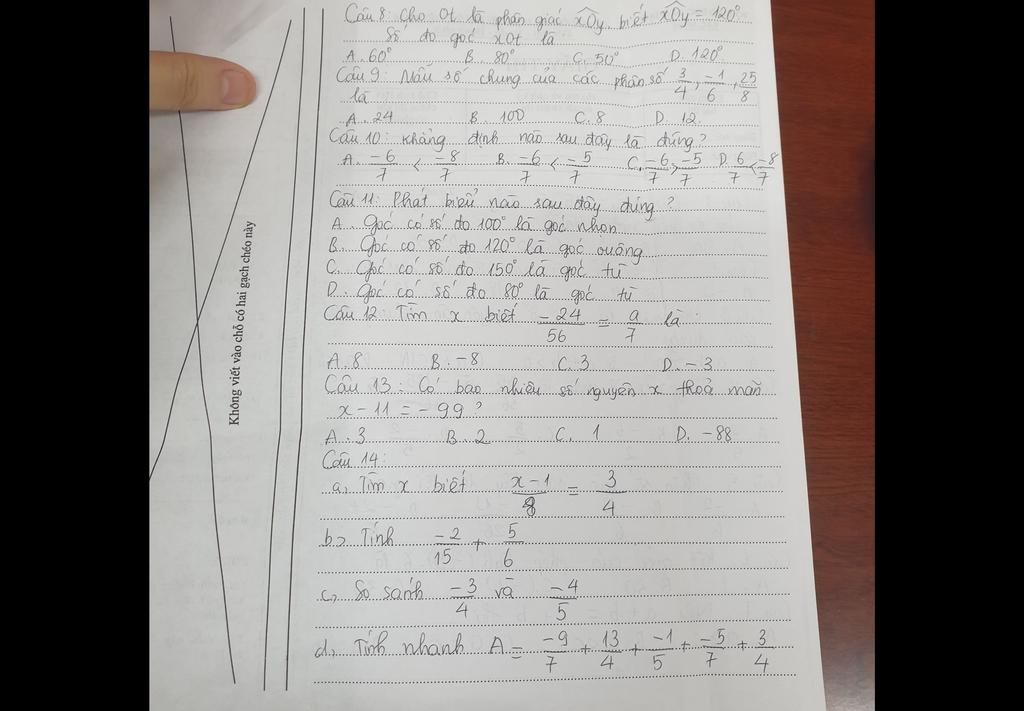 Câu 8: Cho Ot là phân giác xOy biết xOy = 120°
Số đo góc xOt là
A. 60° B. 80° C. 50° D. 120°
Câu 9: Mẫu số chung của các phân số 3/4, -1/6, 25/8
là
A. 24 B. 100 C. 8 D. 12.
Câu 10: Khẳng định nào sau đây là đúng?
A. -6/7 < -8/7 B. -6/7 < -5/7 C. -6/7 > -5/7 D. 6/7 < -8/7
Câu 11: Phát biểu nào sau đây đúng?
A. Góc có số đo 100° là góc nhọn
B. Góc có số đo 120° là góc vuông
C. Góc có số đo 150° là góc tù
D. Góc có số đo 80° là góc tù
Câu 12 Tìm x biết -24/56 = a/7 là
A. 8 B. -8 C. 3 D. -3
Câu 13: Có bao nhiêu số nguyên x thoả mãn
x - 11 = -99?
A. 3 B. 2 C. 1 D. -88
Câu 14:
a, Tìm x biết x-1/8 = 3/4
b, Tính -2/15 + 5/6
c, So sánh -3/4 và -4/5
d, Tính nhanh A = -9/7 + 13/4 + -1/5 + -5/7 + 3/4
Không viết vào chỗ có hai gạch chéo này